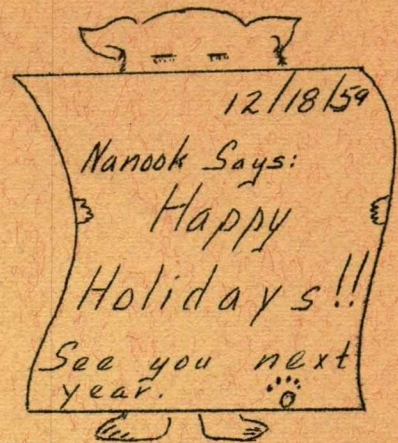 12/18/59
Nanook Says:
Happy
Holidays!!
See you next
year.